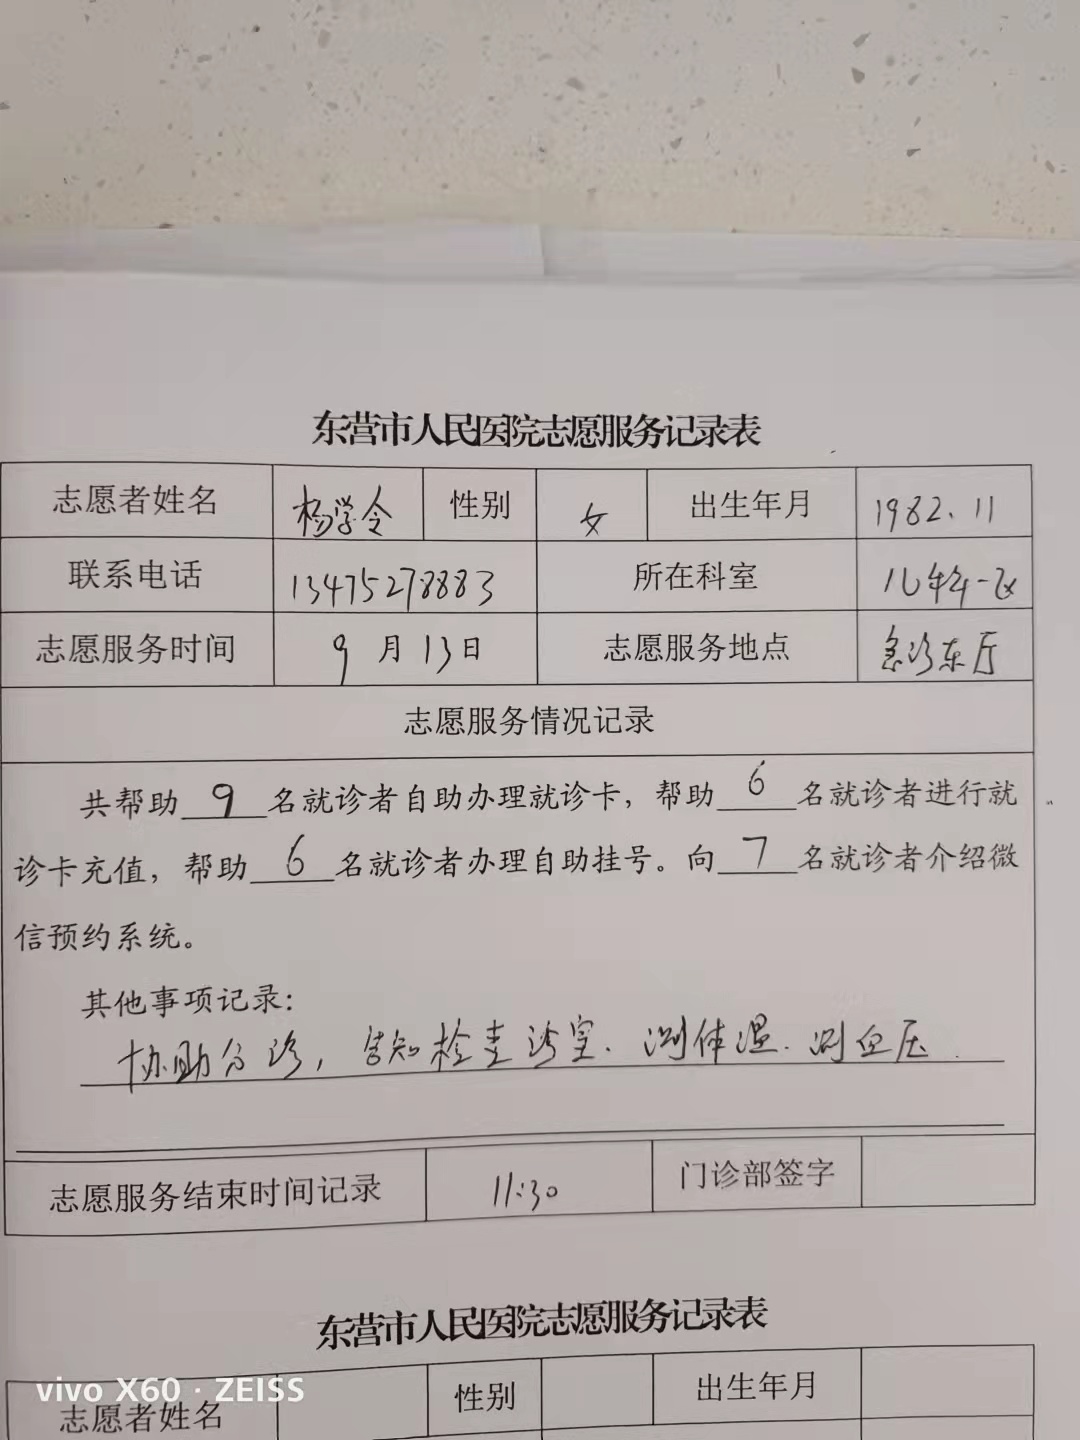 东营市人民医院志愿服务记录表
志愿者姓名 杨学令 性别 女 出生年月 1982.11
联系电话 13475278883 所在科室 儿科一区
志愿服务时间 9月13日 志愿服务地点 急诊东厅
志愿服务情况记录
共帮助 9 名就诊者自助办理就诊卡，帮助 6 名就诊者进行就
诊卡充值，帮助 6 名就诊者办理自助挂号。向 7 名就诊者介绍微
信预约系统。
其他事项记录：
协助分诊，告知检查诊室、测体温、测血压.
志愿服务结束时间记录 11:30 门诊部签字
东营市人民医院志愿服务记录表
志愿者姓名 性别 出生年月
vivo X60 · ZEISS